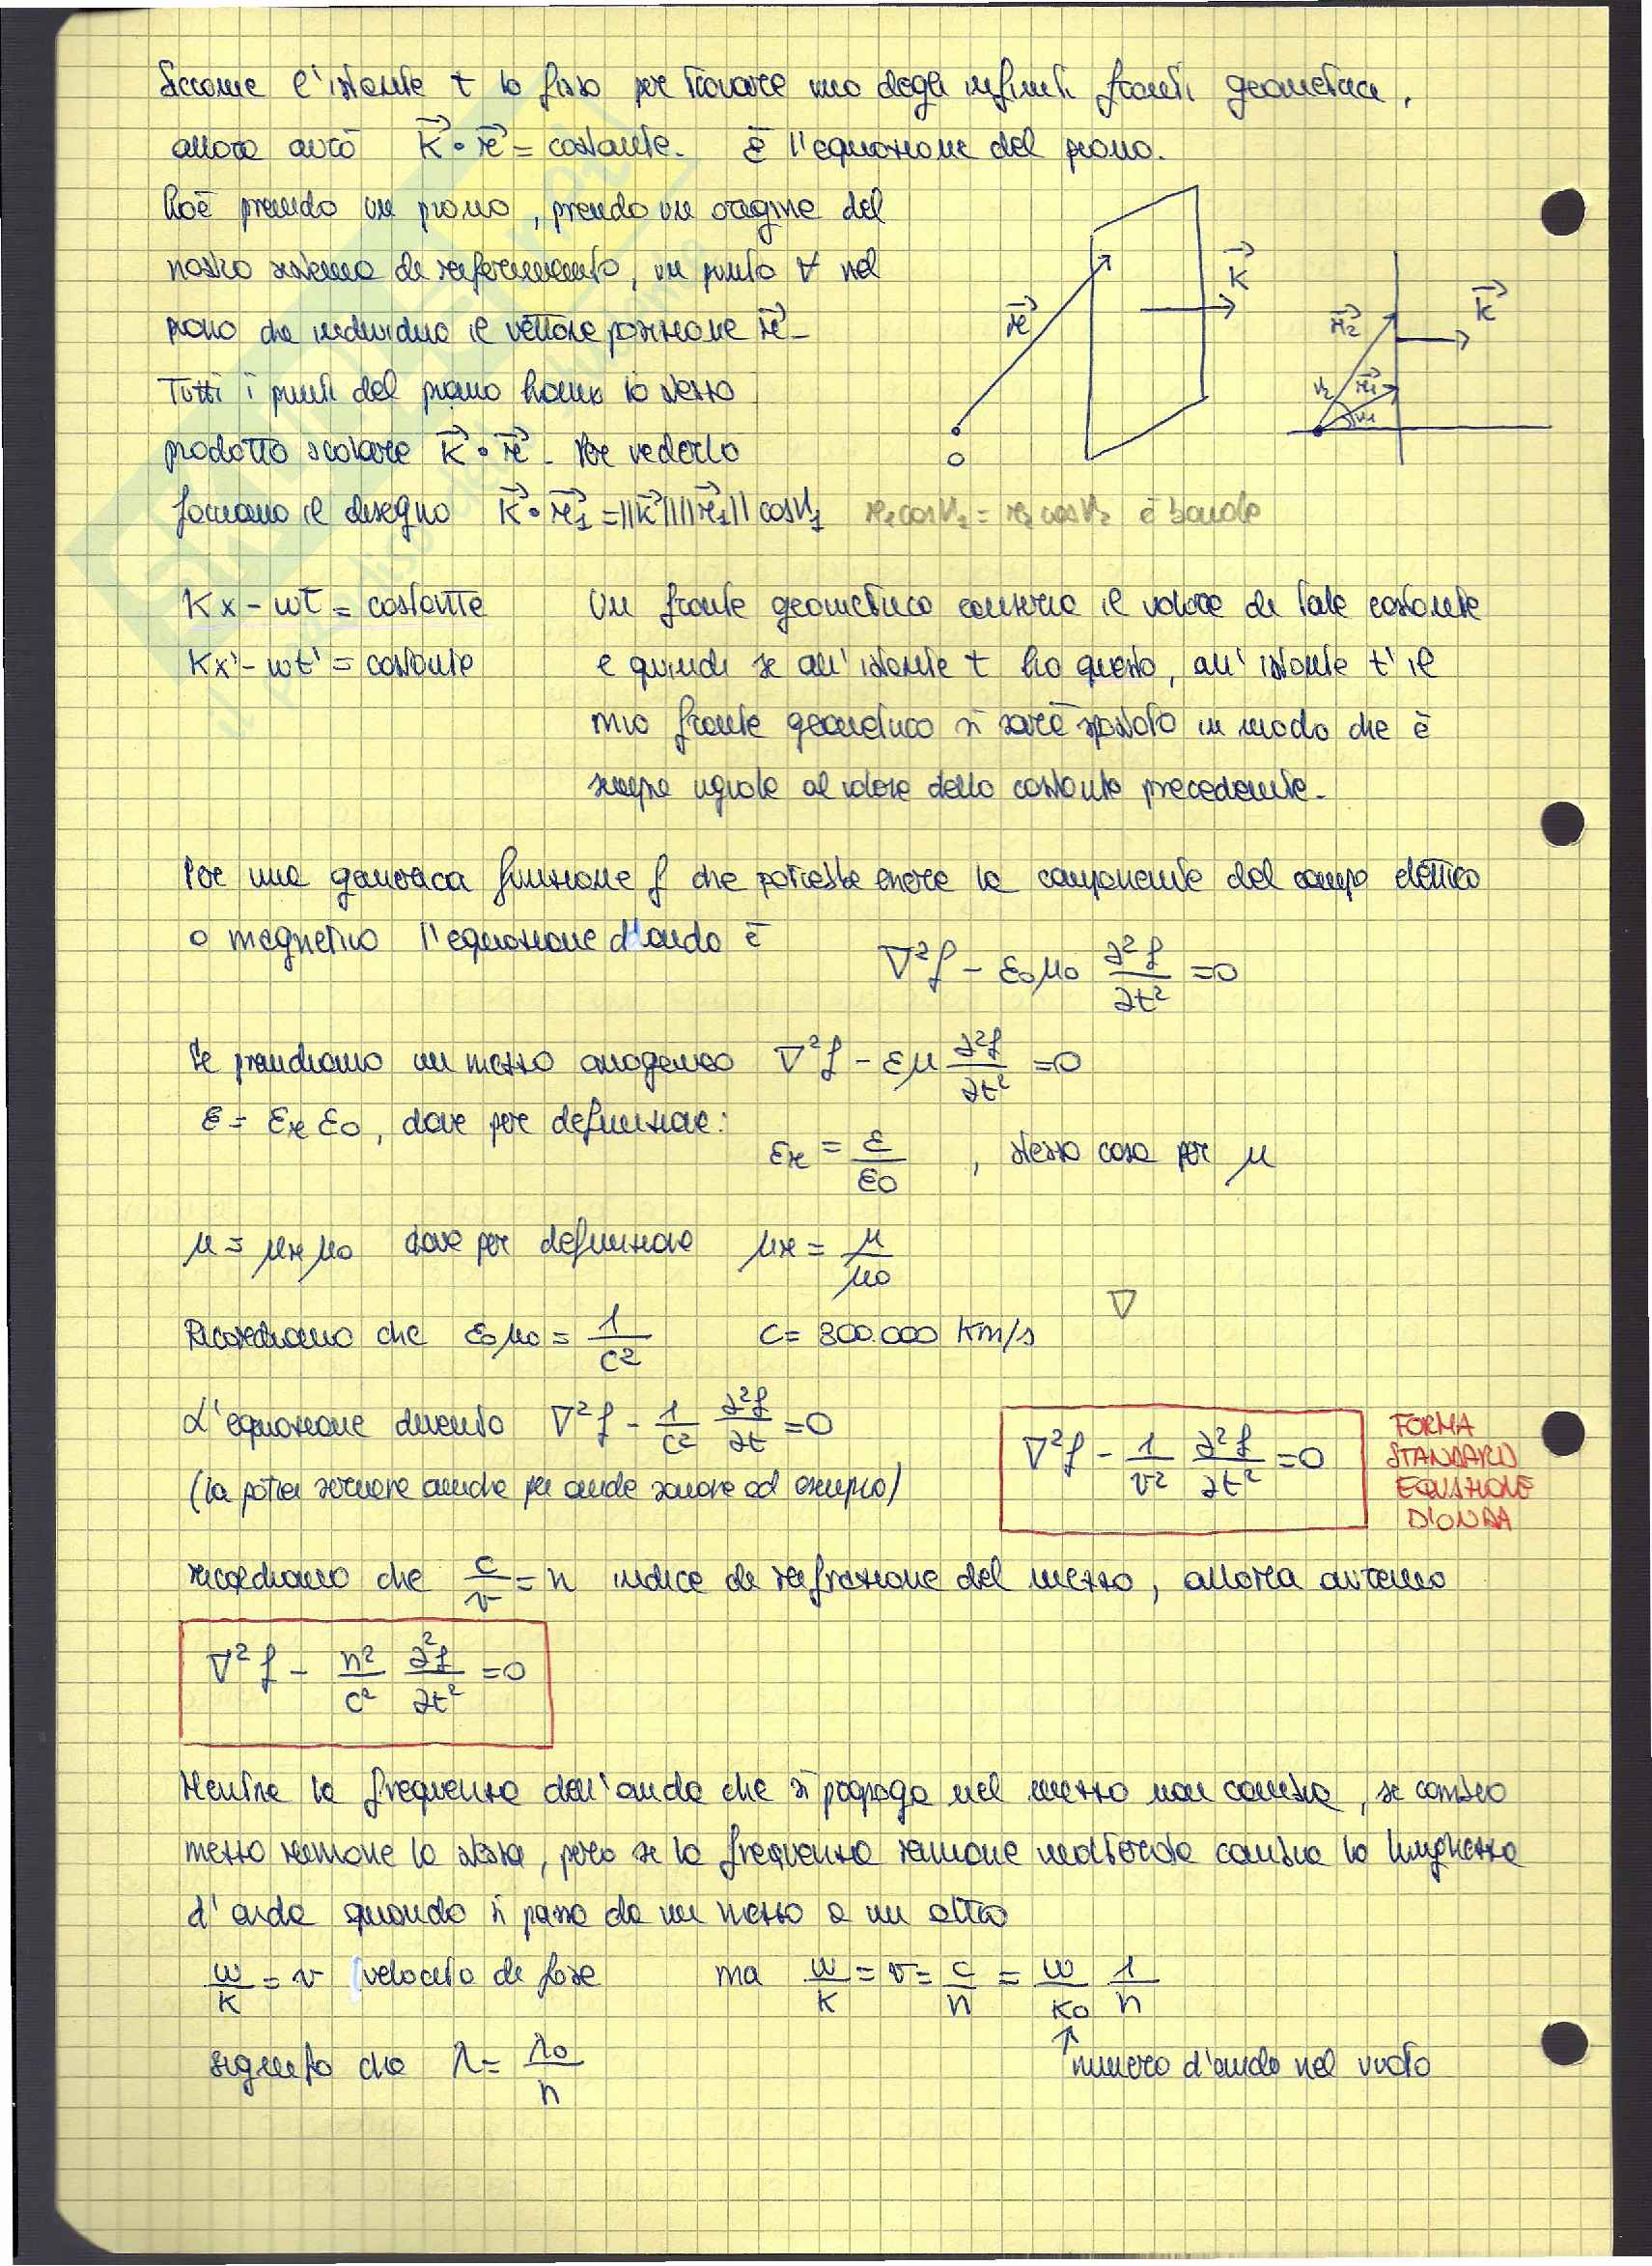 Siccome l'istante t lo fisso per trovare uno degli infiniti fronti geometrici,
allora avrò K⃗ • r⃗ = costante. È l'equazione del piano.
Cioè prendo un piano, prendo un origine del
nostro sistema di riferimento, un punto ∀ nel
piano che individua il vettore posizione r⃗ -
Tutti i punti del piano hanno lo stesso
prodotto scalare K⃗ • r⃗ - Per vederlo
facciamo il disegno K⃗ • r⃗1 = ||K⃗|| ||r⃗1|| cosϑ1 r1 cosϑ1 = r2 cosϑ2 è banale
r⃗ K⃗ O
r⃗2 r⃗1 K⃗ ϑ2 ϑ1
Kx - ωt = costante Un fronte geometrico conserva il valore di tale costante
Kx' - ωt' = costante e quindi se all'istante t ho questo, all'istante t' il
mio fronte geometrico si sarà spostato in modo che è
sempre uguale al valore della costante precedente.
Per una generica funzione f che potrebbe essere la componente del campo elettrico
o magnetico l'equazione d'onda è ∇²f - ε0μ0 ∂²f/∂t² = 0
Se prendiamo un mezzo omogeneo ∇²f - εμ ∂²f/∂t² = 0
ε = εr ε0, dove per definizione: εr = ε/ε0 , stessa cosa per μ
μ = μr μ0 dove per definizione μr = μ/μ0
∇
Ricordiamo che ε0μ0 = 1/c² c = 300.000 Km/s
L'equazione diventa ∇²f - 1/c² ∂²f/∂t = 0
(la potrei scrivere anche per onde sonore ad esempio)
∇²f - 1/v² ∂²f/∂t² = 0
FORMA
STANDARD
EQUAZIONE
D'ONDA
ricordiamo che c/v = n indice di rifrazione del mezzo, allora avremo
∇²f - n²/c² ∂²f/∂t² = 0
Mentre la frequenza dell'onda che si propaga nel mezzo non cambia, se cambio
mezzo rimane la stessa, però se la frequenza rimane inalterata cambia la lunghezza
d'onda quando si passa da un mezzo a un altro
ω/K = v velocità di fase ma ω/K = v = c/n = ω/K0 1/n
↑ numero d'onda nel vuoto
significa che λ = λ0/n